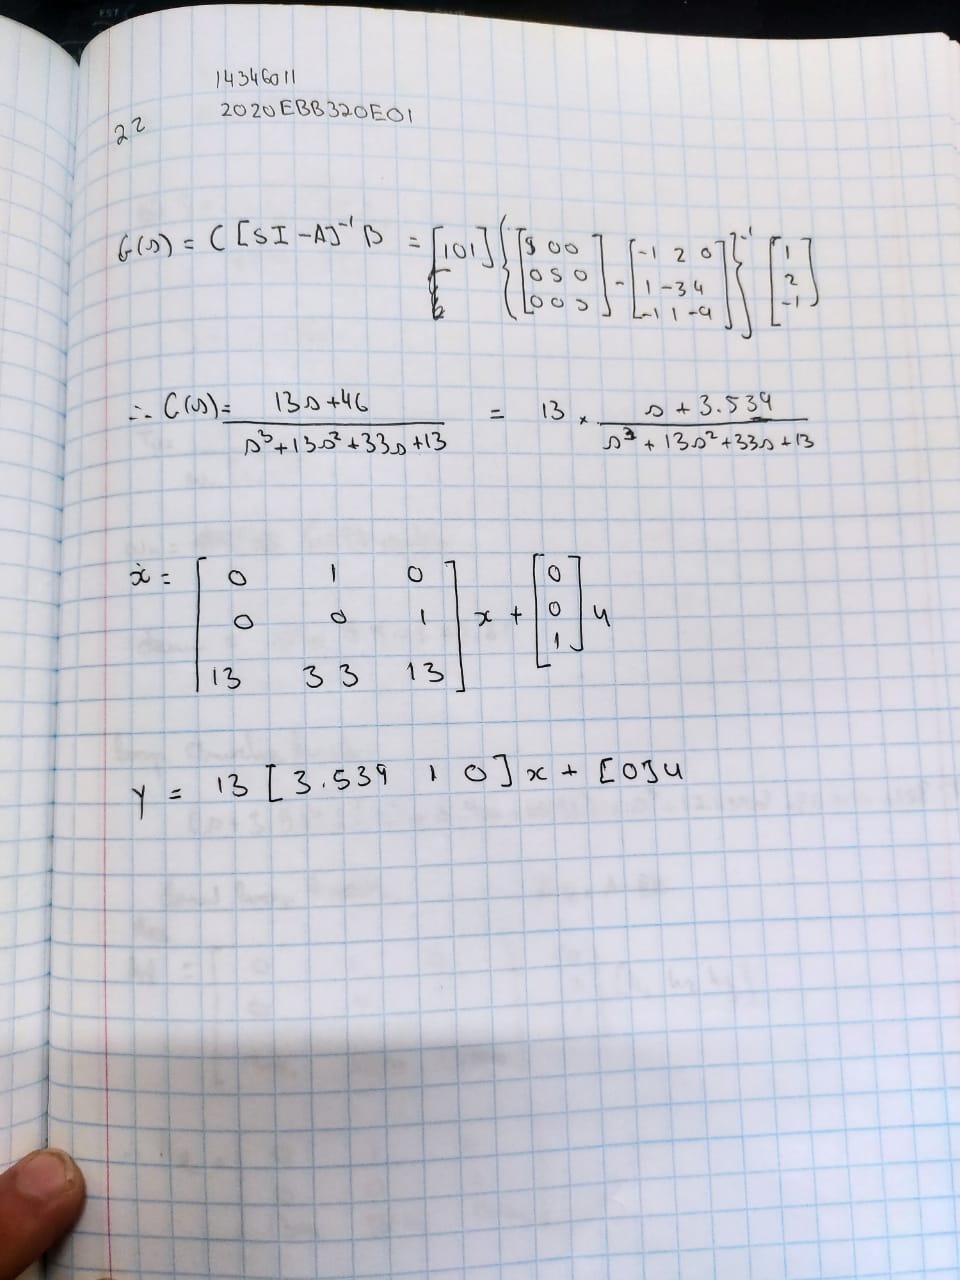 14346011
2020EBB320E01
22
G(s) = C [SI-A]⁻¹ B = [101] { [s 0 0; 0 s 0; 0 0 s] - [-1 2 0; 1 -3 4; -1 1 -9] }⁻¹ [1; 2; -1]
∴ G(s) = (13s+46)/(s³+13s²+33s+13) = 13 × (s + 3.539)/(s³ + 13s²+33s+13)
ẋ = [0 1 0; 0 0 1; 13 33 13] x + [0; 0; 1] u
Y = 13 [3.539 1 0] x + [0] u